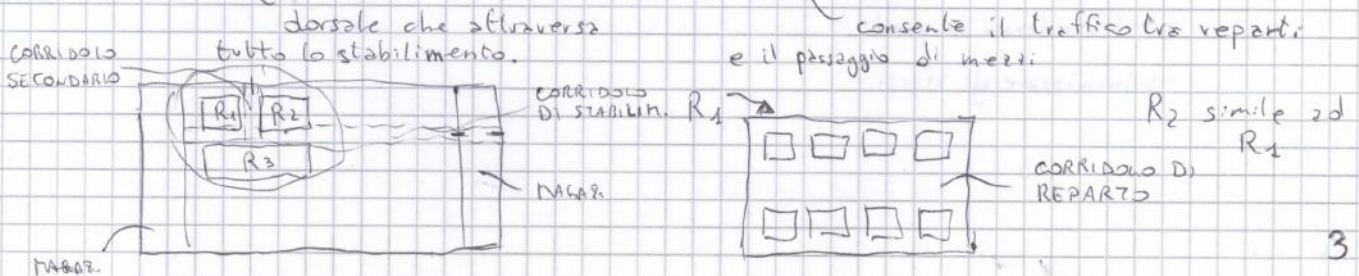 dorsale che attraversa
tutto lo stabilimento.
consente il traffico tra reparti
e il passaggio di mezzi
CORRIDOIO
SECONDARIO
R1 R2
R3
CORRIDOIO
DI STABILIM.
MAGAZ.
MAGAZ.
R1
CORRIDOIO DI
REPARTO
R2 simile ad
R1
3